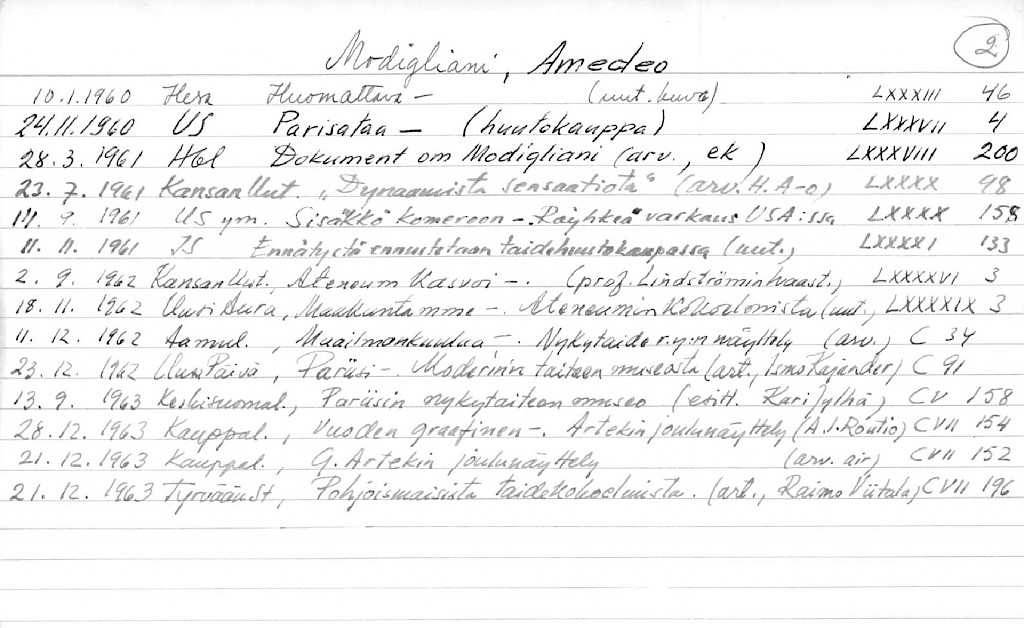 2
Modigliani, Amedeo
10.1.1960 Hesa Huomattava – (uut. kuva) LXXXIII 46
24.11.1960 US Parisataa – (huutokauppa) LXXXVII 4
28.3.1961 Hbl Dokument om Modigliani (arv., ek) LXXXVIII 200
23.7.1961 Kansan Uut. „Dynaamista sensaatiota" (arv. H.A-o) LXXXX 98
9.1961 US ym. Sisäkkö komeroon – Röyhkeä varkaus USA:ssa LXXXX 158
11.11.1961 IS Ennätystä ennustetaan taidehuutokaupassa (uut.) LXXXXI 133
2.9.1962 Kansan Uut., Ateneum kasvoi –. (prof. Lindströmin haast.) LXXXXVI 3
18.11.1962 Uusi Aura, Maakuntamme –. Ateneumin kokoelmista (uut., LXXXXIX 3
11.12.1962 Aamul., Maailmankuulua –. Nykytaide r.y:n näyttely (arv.) C 34
23.12.1962 Uusi Päivä, Pariisi –. Modernin taiteen museosta (art., Ismo Kajander) C 91
13.9.1963 Keskisuomal., Pariisin nykytaiteen museo (esitt. Kari Jylhä) CV 158
28.12.1963 Kauppal., Vuoden graafinen –. Artekin joulunäyttely (A.I. Routio) CVII 154
21.12.1963 Kauppal., G. Artekin joulunäyttely (arv. air) CVII 152
21.12.1963 Tyrvään St, Pohjoismaisista taidekokoelmista. (art., Raimo Viitala) CVII 196